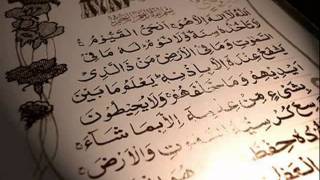 اللّٰهُ لَا اِلٰهَ اِلَّا هُوَ اَلْحَيُّ الْقَيُّومُ
لَا تَأْخُذُهُ سِنَةٌ وَلَا نَوْمٌ لَهُ مَا فِي
السَّمٰوٰتِ وَمَا فِي الْاَرْضِ مَنْ ذَا الَّذِي
يَشْفَعُ عِنْدَهُ اِلَّا بِاِذْنِهِ يَعْلَمُ مَا بَيْنَ
اَيْدِيهِمْ وَمَا خَلْفَهُمْ وَلَا يُحِيطُونَ
بِشَيْءٍ مِنْ عِلْمِهِ اِلَّا بِمَا شَاءَ
وَسِعَ كُرْسِيُّهُ السَّمٰوٰتِ وَالْاَرْضَ